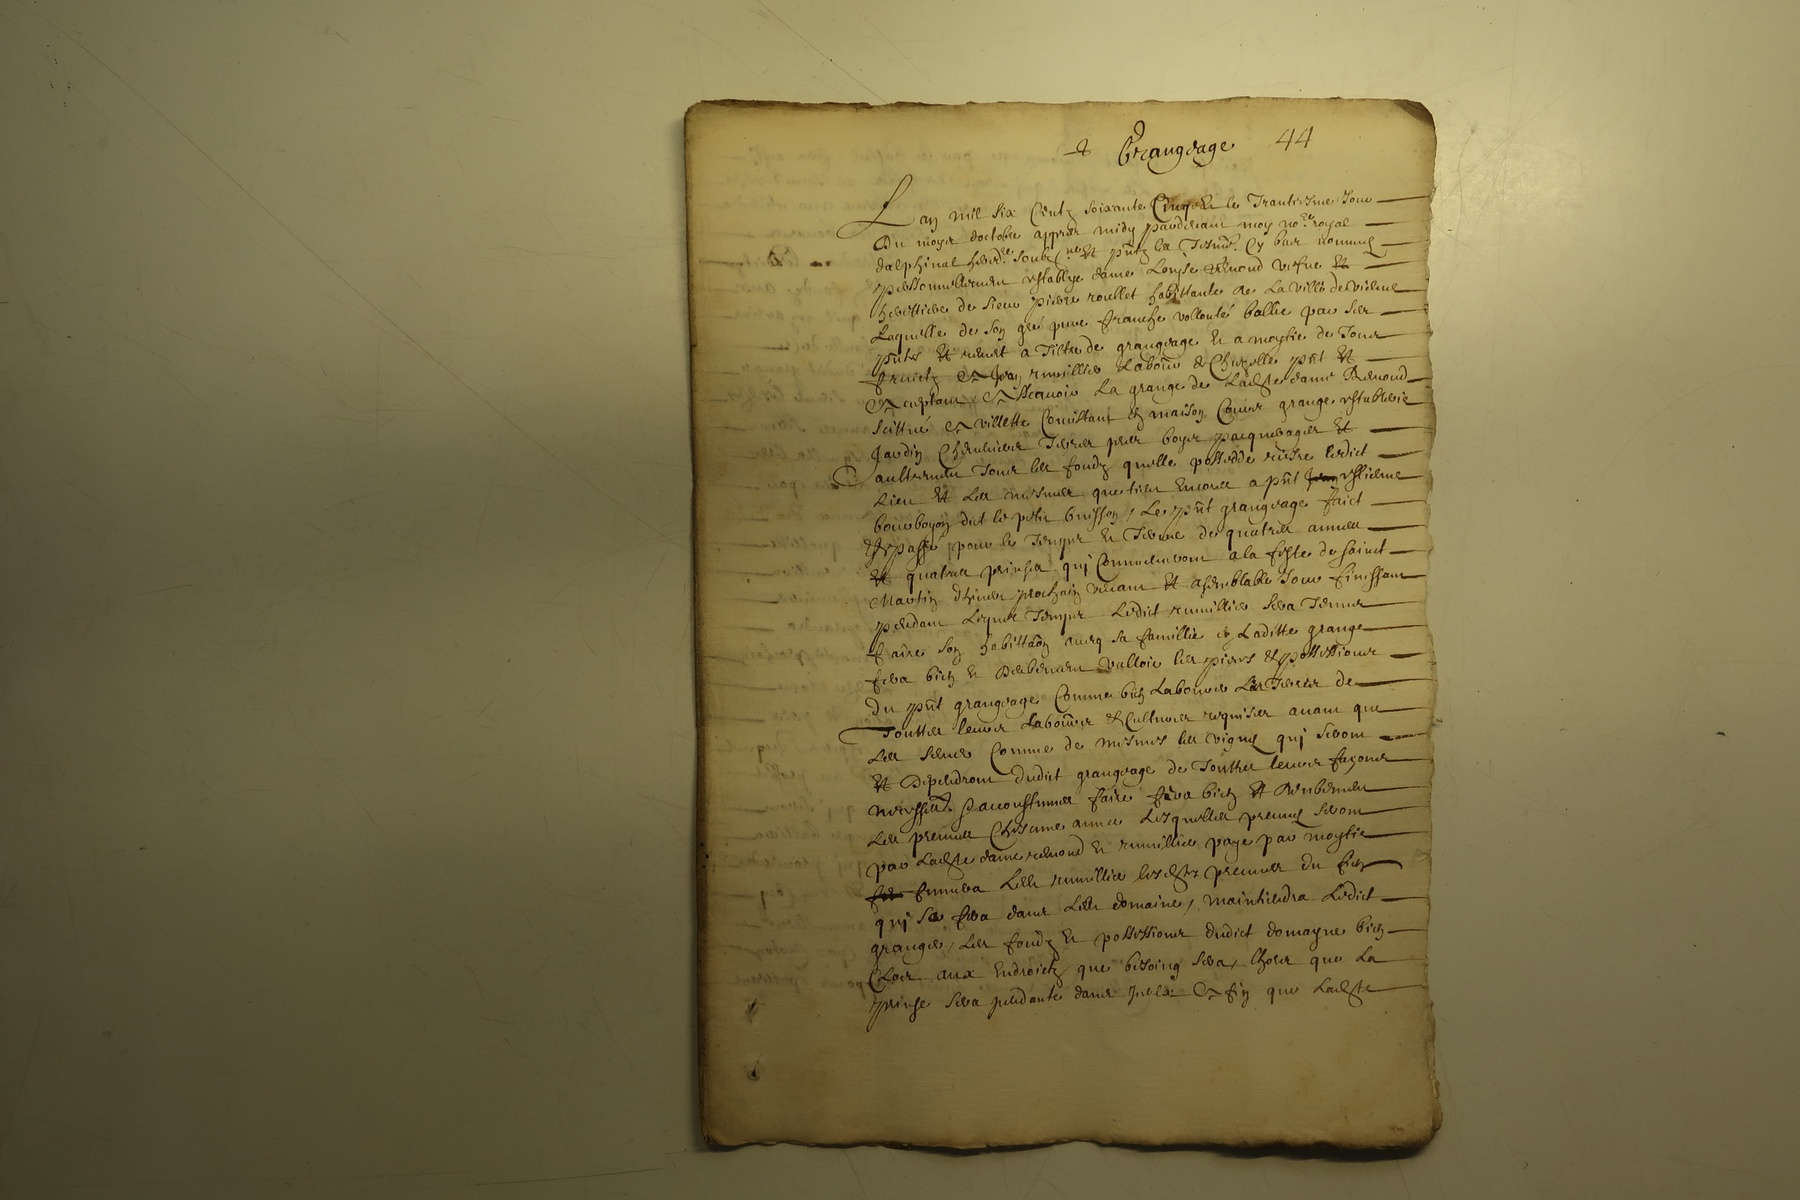 Grangeage 44
Lan mil six Centz soixante Cinq et le Trantiesme Jour
du moys doctobre appres midy pardevant moy no.re royal
dalphinal hered.re soubz.ne et pntz les Tesm. Cy bas nommes
personnellement establye dame Loyse Remond vefve et
herettiere de sieur pierre roullet habittante de La ville de vienne
Laquelle de son gré pure franche vollonté baillie par ses
pntes et remet a Tiltre de grangeage et a moytié de Tous
fruictz A Jean rumillier Labour de Chezelle pnt et
acceptant, A Scavoir La grange de Ladite dame Remond
scittué A villette Consistant en maison Cours grange establerie
Jardin Chenevier Terres prer boys pasquerages et
aultrement Tous les fondz quelle possedde riere ledict
Lieu et les mesmes que tient Encores a pnt estienne
bourboyon dit le petit buisson, Le pnt grangeage faict
et passé pour le Temps et Terme de quatres annees
et quatres prinses qui Commenceront a la feste de sainct
Martin dhiver prochain venant et a semblable Jour finissant
pendant Lequel Temps Ledict rumillier sera Tenu
faire son habittaon avecq sa famillie en Laditte grange
fera bien et deubement valloir les pieces et possessions
du pnt grangeage Comme bien Labourer Les Terres de
Touttes leurs Labours et Cultures requises avant que
Les semer Comme de mesmes les vignes qui seront
et deppendront dudict grangeage de Touttes leurs façons
necessres et accoustumees faire fera bien et deubement
Les premier Chescune annee Lesquelles premes seront
par Ladite dame remond et rumillier paye par moytié
fumera Ledt rumillier lesdites premier du fien
qui se fera dans Ledt domaine, maintiendra Ledict
grangier, Les fondz et possessions dudict domayne bien
Clos aux Endroictz que besoing sera, Lhors que La
prinse sera pendante dans Iceluy A fin que Ladite